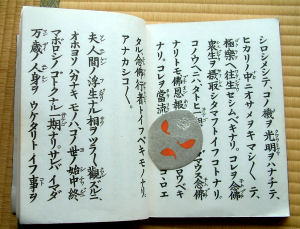 シロシメシテコノ機ヲ光明ヲハナチテ、
ヒカリノ中ニオサメヲキマシ〱テ、
極樂ヘ往生セシムベキナリ。コレヲ念佛
衆生ヲ攝取シタマフトイフコトナリ。
コノウヘニハ、タトヒ一期 マウス念佛
ナリトモ、佛恩報 ロウベキ
ナリ。コレヲ當流 コヽロエ
タル、念佛行者トイフベキモノナリ。
アナカシコ〱。
夫人間ノ浮生ナル相ヲツラ〱觀ズルニ、
オホヨソハカナキモノハ、コノ世ノ始中終
マボロシノゴトクナル一期ナリ。サレバイマダ
万歳ノ人身ヲウケタリトイフ事ヲ